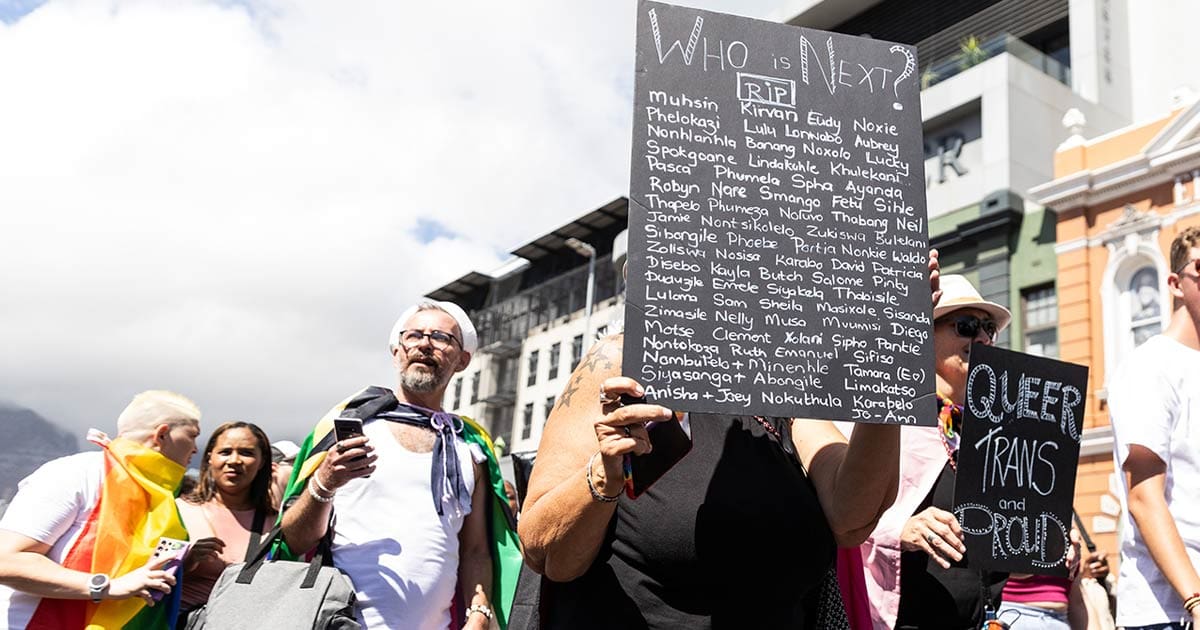 WHO is NEXT?
RIP
Muhsin Kirvan Eudy Noxie
Phelokazi Lulu Lonwabo Aubrey
Nonhlanhla Banang Noxolo Lucky
Spokgoane Lindakuhle Khulekani
Pasca Phumela Spha Ayanda
Robyn Nare Smango Fety Sihle
Thapelo Phumeza Noluvo Thabang Neil
Jamie Nontsikolelo Zukiswa Bulelani
Sibongile Phoebe Portia Nonkie Waldo
Zoliswa Nosisa Karabo David Patricia
Disebo Kayla Butch Salome Pinky
Duduzile Emele Siyakela Thabisile
Lulama Sam Sheila Masixole Sisanda
Zimasile Nelly Musa Mvumisi Diego
Motse Clement Xolani Sipho Pantie
Nontokozo Ruth Emanuel Sifiso
Nambulelo + Minenhle Tamara (EC)
Siyasanga + Abongile Limakatso
Anisha + Joey Nokuthula Karabelo
Jo-Ann
QUEER,
TRANS
and
PROUD